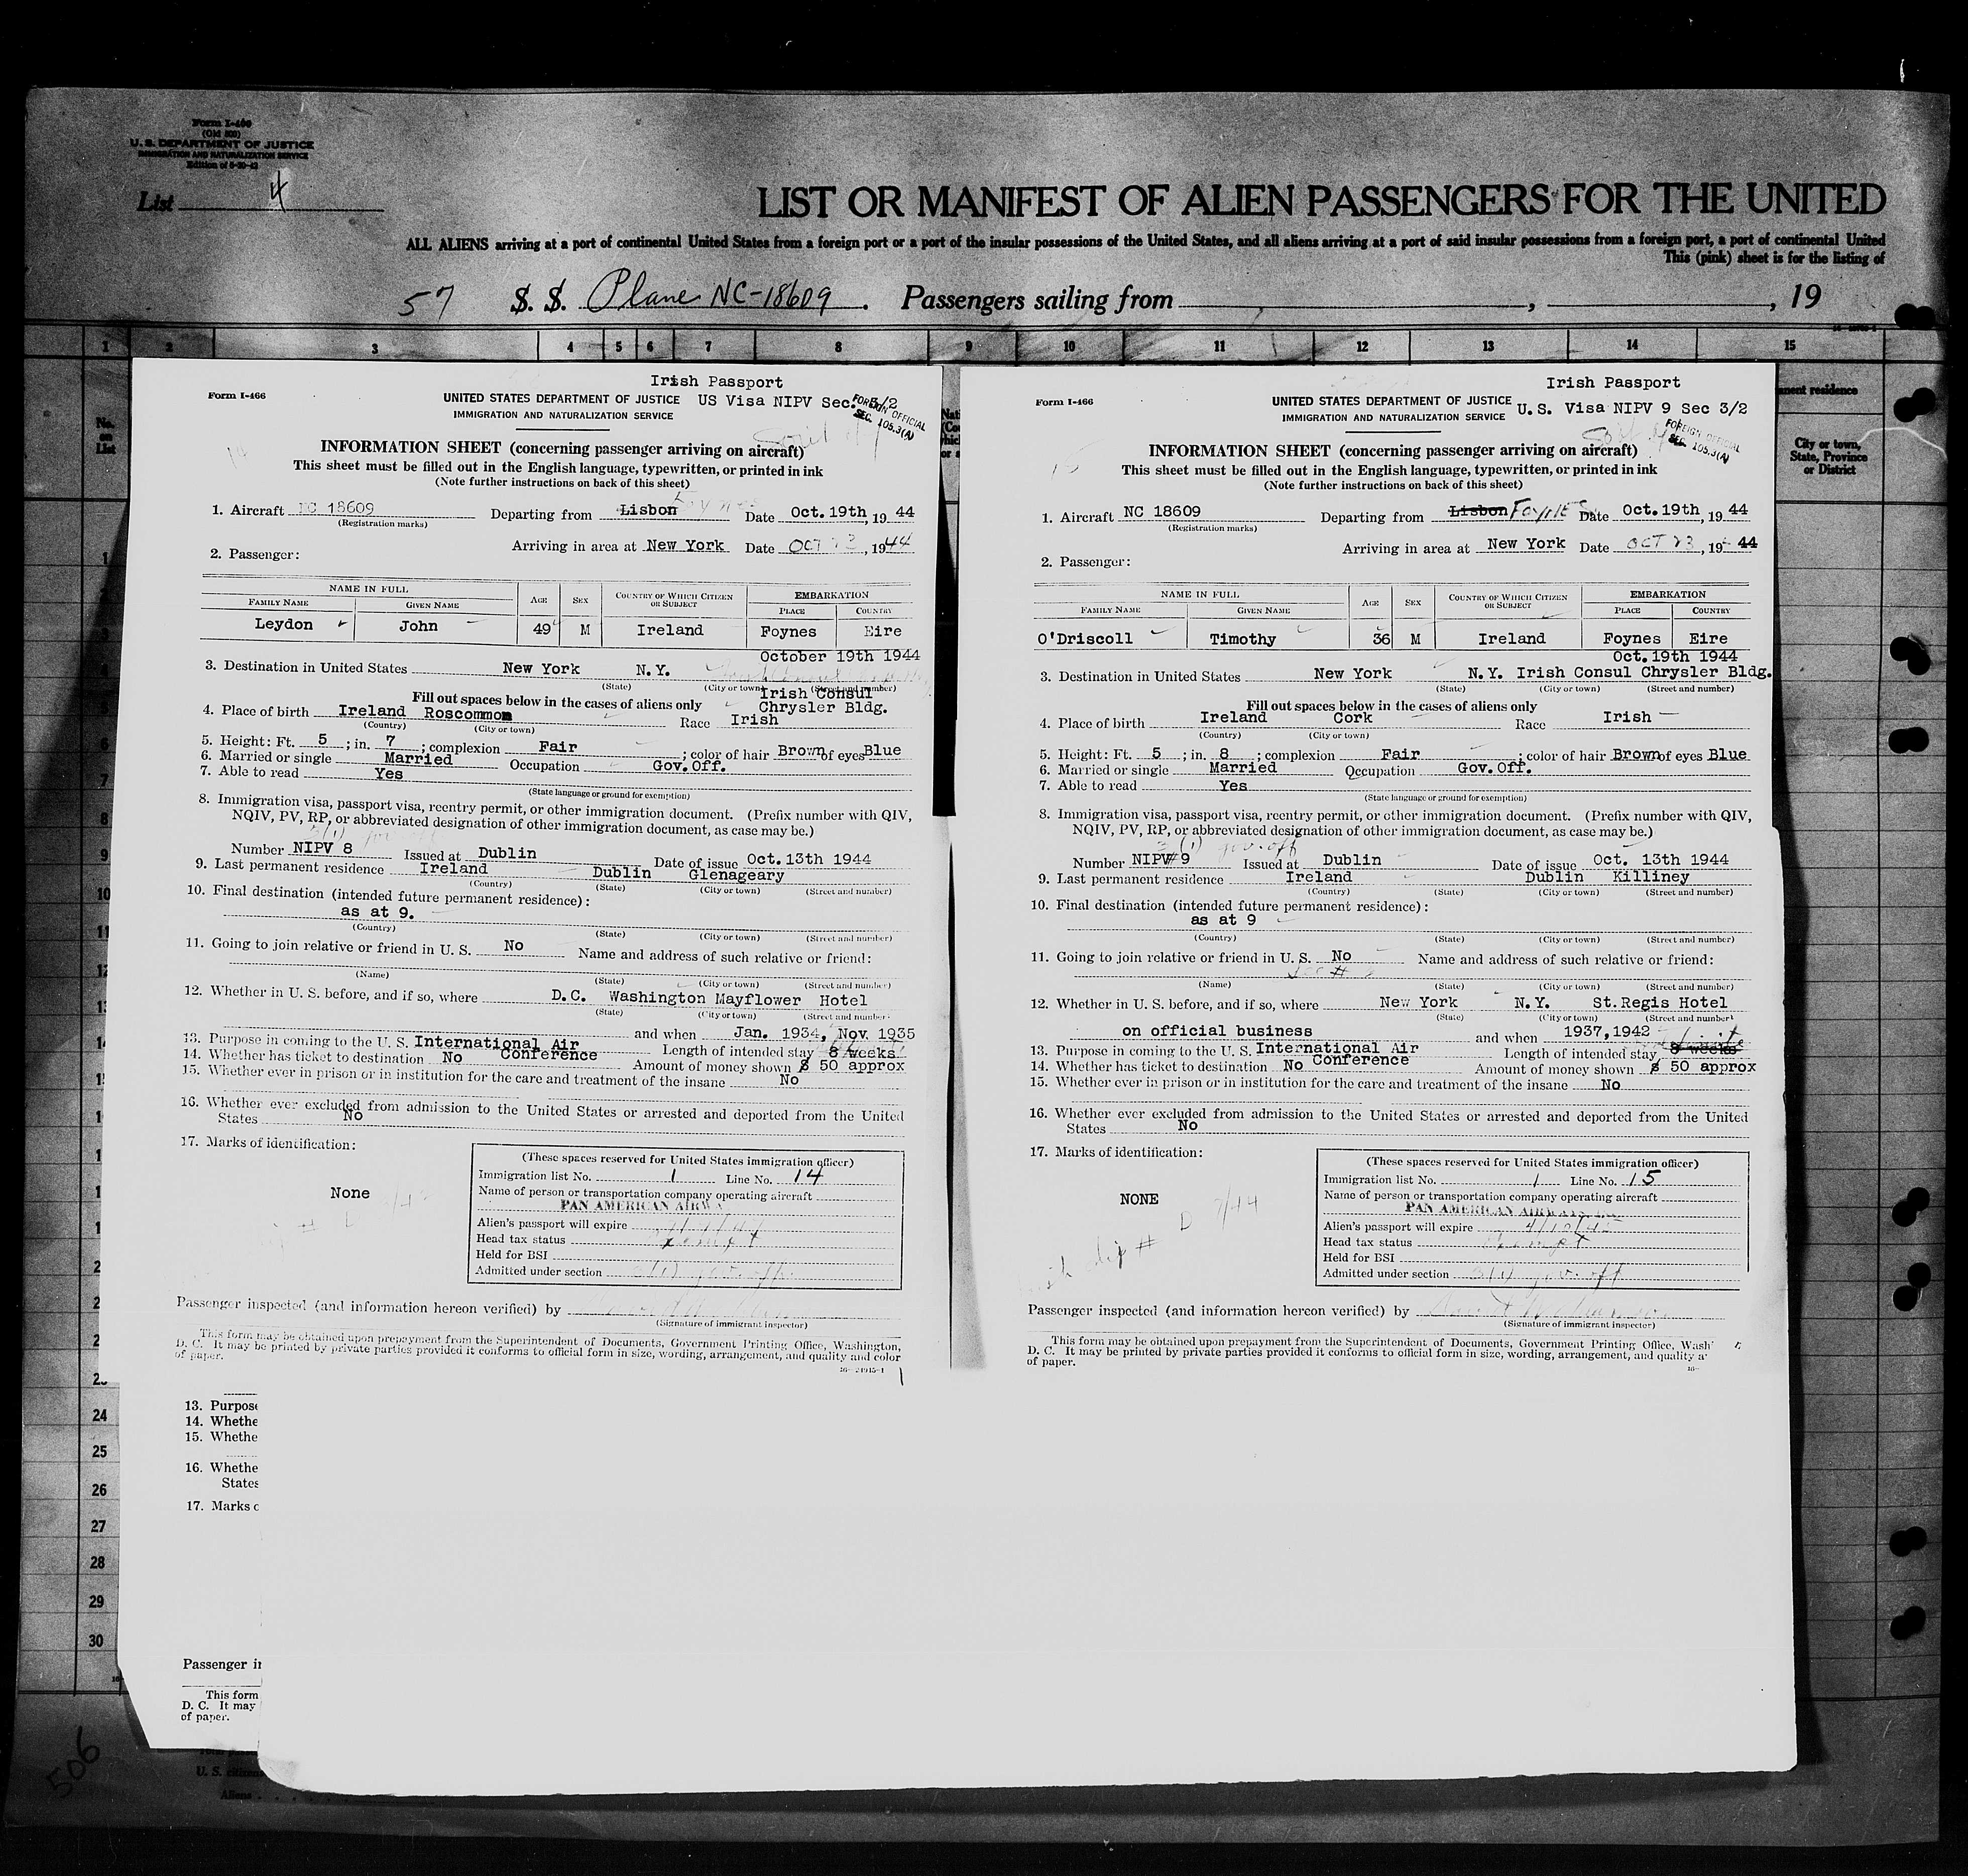 Form I-466
(Old 500)
U. S. DEPARTMENT OF JUSTICE
IMMIGRATION AND NATURALIZATION SERVICE
List 4
LIST OR MANIFEST OF ALIEN PASSENGERS FOR THE UNITED
ALL ALIENS arriving at a port of continental United States from a foreign port or a port of the insular possessions of the United States, and all aliens arriving at a port of said insular possessions from a foreign port, a port of continental United
This (pink) sheet is for the listing of
57 S. S. Plane NC-18609. Passengers sailing from , , 19
1 2 3 4 5 6 7 8 9 10 11 12 13 14 15
No. on List
anent residence
City or town, State, Province or District
Irish Passport
Form I-466
UNITED STATES DEPARTMENT OF JUSTICE US Visa NIPV Sec. 3/2
IMMIGRATION AND NATURALIZATION SERVICE
FOREIGN OFFICIAL
SEC. 105.3(A)
INFORMATION SHEET (concerning passenger arriving on aircraft)
This sheet must be filled out in the English language, typewritten, or printed in ink
(Note further instructions on back of this sheet)
1. Aircraft NC 18609 Departing from Lisbon Foynes Date Oct. 19th, 19 44
(Registration marks)
Arriving in area at New York Date OCT 23, 1944
2. Passenger:
NAME IN FULL AGE SEX COUNTRY OF WHICH CITIZEN OR SUBJECT EMBARKATION
FAMILY NAME GIVEN NAME PLACE COUNTRY
Leydon John 49 M Ireland Foynes Eire
October 19th 1944
3. Destination in United States New York N.Y.
(State) (City or town) (Street and number)
Irish Consul
Fill out spaces below in the cases of aliens only Chrysler Bldg.
4. Place of birth Ireland Roscommon Race Irish
(Country) (City or town)
5. Height: Ft. 5; in. 7; complexion Fair; color of hair Brown of eyes Blue
6. Married or single Married Occupation Gov. Off.
7. Able to read Yes
(State language or ground for exemption)
8. Immigration visa, passport visa, reentry permit, or other immigration document. (Prefix number with QIV,
NQIV, PV, RP, or abbreviated designation of other immigration document, as case may be.)
3(1) gov off
Number NIPV 8 Issued at Dublin Date of issue Oct. 13th 1944
9. Last permanent residence Ireland Dublin Glenageary
(Country) (State) (City or town) (Street and number)
10. Final destination (intended future permanent residence):
as at 9.
(Country) (State) (City or town) (Street and number)
11. Going to join relative or friend in U. S. No Name and address of such relative or friend:
(Name) (State) (City or town) (Street and number)
12. Whether in U. S. before, and if so, where D.C. Washington Mayflower Hotel
(State) (City or town) (Street and number)
and when Jan. 1934, Nov. 1935
13. Purpose in coming to the U. S. International Air Conference Length of intended stay 8 weeks
14. Whether has ticket to destination No Amount of money shown $ 50 approx
15. Whether ever in prison or in institution for the care and treatment of the insane No
16. Whether ever excluded from admission to the United States or arrested and deported from the United
States No
17. Marks of identification:
None
(These spaces reserved for United States immigration officer)
Immigration list No. 1 Line No. 14
Name of person or transportation company operating aircraft
PAN AMERICAN AIRW
Alien's passport will expire
Head tax status Exempt
Held for BSI
Admitted under section 3(1) gov. off.
Passenger inspected (and information hereon verified) by
(Signature of immigrant inspector)
This form may be obtained upon prepayment from the Superintendent of Documents, Government Printing Office, Washington,
D. C. It may be printed by private parties provided it conforms to official form in size, wording, arrangement, and quality and color
of paper.
Irish Passport
Form I-466
UNITED STATES DEPARTMENT OF JUSTICE U.S. Visa NIPV 9 Sec 3/2
IMMIGRATION AND NATURALIZATION SERVICE
FOREIGN OFFICIAL
SEC. 105.3(A)
INFORMATION SHEET (concerning passenger arriving on aircraft)
This sheet must be filled out in the English language, typewritten, or printed in ink
(Note further instructions on back of this sheet)
1. Aircraft NC 18609 Departing from Lisbon Foynes Date Oct. 19th, 19 44
(Registration marks)
Arriving in area at New York Date OCT 23, 19 44
2. Passenger:
NAME IN FULL AGE SEX COUNTRY OF WHICH CITIZEN OR SUBJECT EMBARKATION
FAMILY NAME GIVEN NAME PLACE COUNTRY
O'Driscoll Timothy 36 M Ireland Foynes Eire
Oct. 19th 1944
3. Destination in United States New York N.Y. Irish Consul Chrysler Bldg.
(State) (City or town) (Street and number)
Fill out spaces below in the cases of aliens only
4. Place of birth Ireland Cork Race Irish
(Country) (City or town)
5. Height: Ft. 5; in. 8; complexion Fair; color of hair Brown of eyes Blue
6. Married or single Married Occupation Gov. Off.
7. Able to read Yes
(State language or ground for exemption)
8. Immigration visa, passport visa, reentry permit, or other immigration document. (Prefix number with QIV,
NQIV, PV, RP, or abbreviated designation of other immigration document, as case may be.)
3(1) gov. off
Number NIPV#9 Issued at Dublin Date of issue Oct. 13th 1944
9. Last permanent residence Ireland Dublin Killiney
(Country) (State) (City or town) (Street and number)
10. Final destination (intended future permanent residence):
as at 9
(Country) (State) (City or town) (Street and number)
11. Going to join relative or friend in U. S. No Name and address of such relative or friend:
(Name) (State) (City or town) (Street and number)
12. Whether in U. S. before, and if so, where New York N.Y. St. Regis Hotel
(State) (City or town) (Street and number)
on official business and when 1937, 1942
13. Purpose in coming to the U. S. International Air Conference Length of intended stay 8 weeks
14. Whether has ticket to destination No Amount of money shown $ 50 approx
15. Whether ever in prison or in institution for the care and treatment of the insane No
16. Whether ever excluded from admission to the United States or arrested and deported from the United
States No
17. Marks of identification:
NONE
(These spaces reserved for United States immigration officer)
Immigration list No. 1 Line No. 15
Name of person or transportation company operating aircraft
PAN AMERICAN AIRWAYS, INC.
Alien's passport will expire 4/10/45
Head tax status Exempt
Held for BSI
Admitted under section 3(1) gov. off
Passenger inspected (and information hereon verified) by
(Signature of immigrant inspector)
This form may be obtained upon prepayment from the Superintendent of Documents, Government Printing Office, Wash
D. C. It may be printed by private parties provided it conforms to official form in size, wording, arrangement, and quality a
of paper.
13. Purpose
14. Whethe
15. Whethe
16. Whethe
States
17. Marks o
Passenger in
This form
D. C. It may
of paper.
24
25
26
27
28
29
30
U. S. citizens
Aliens
506